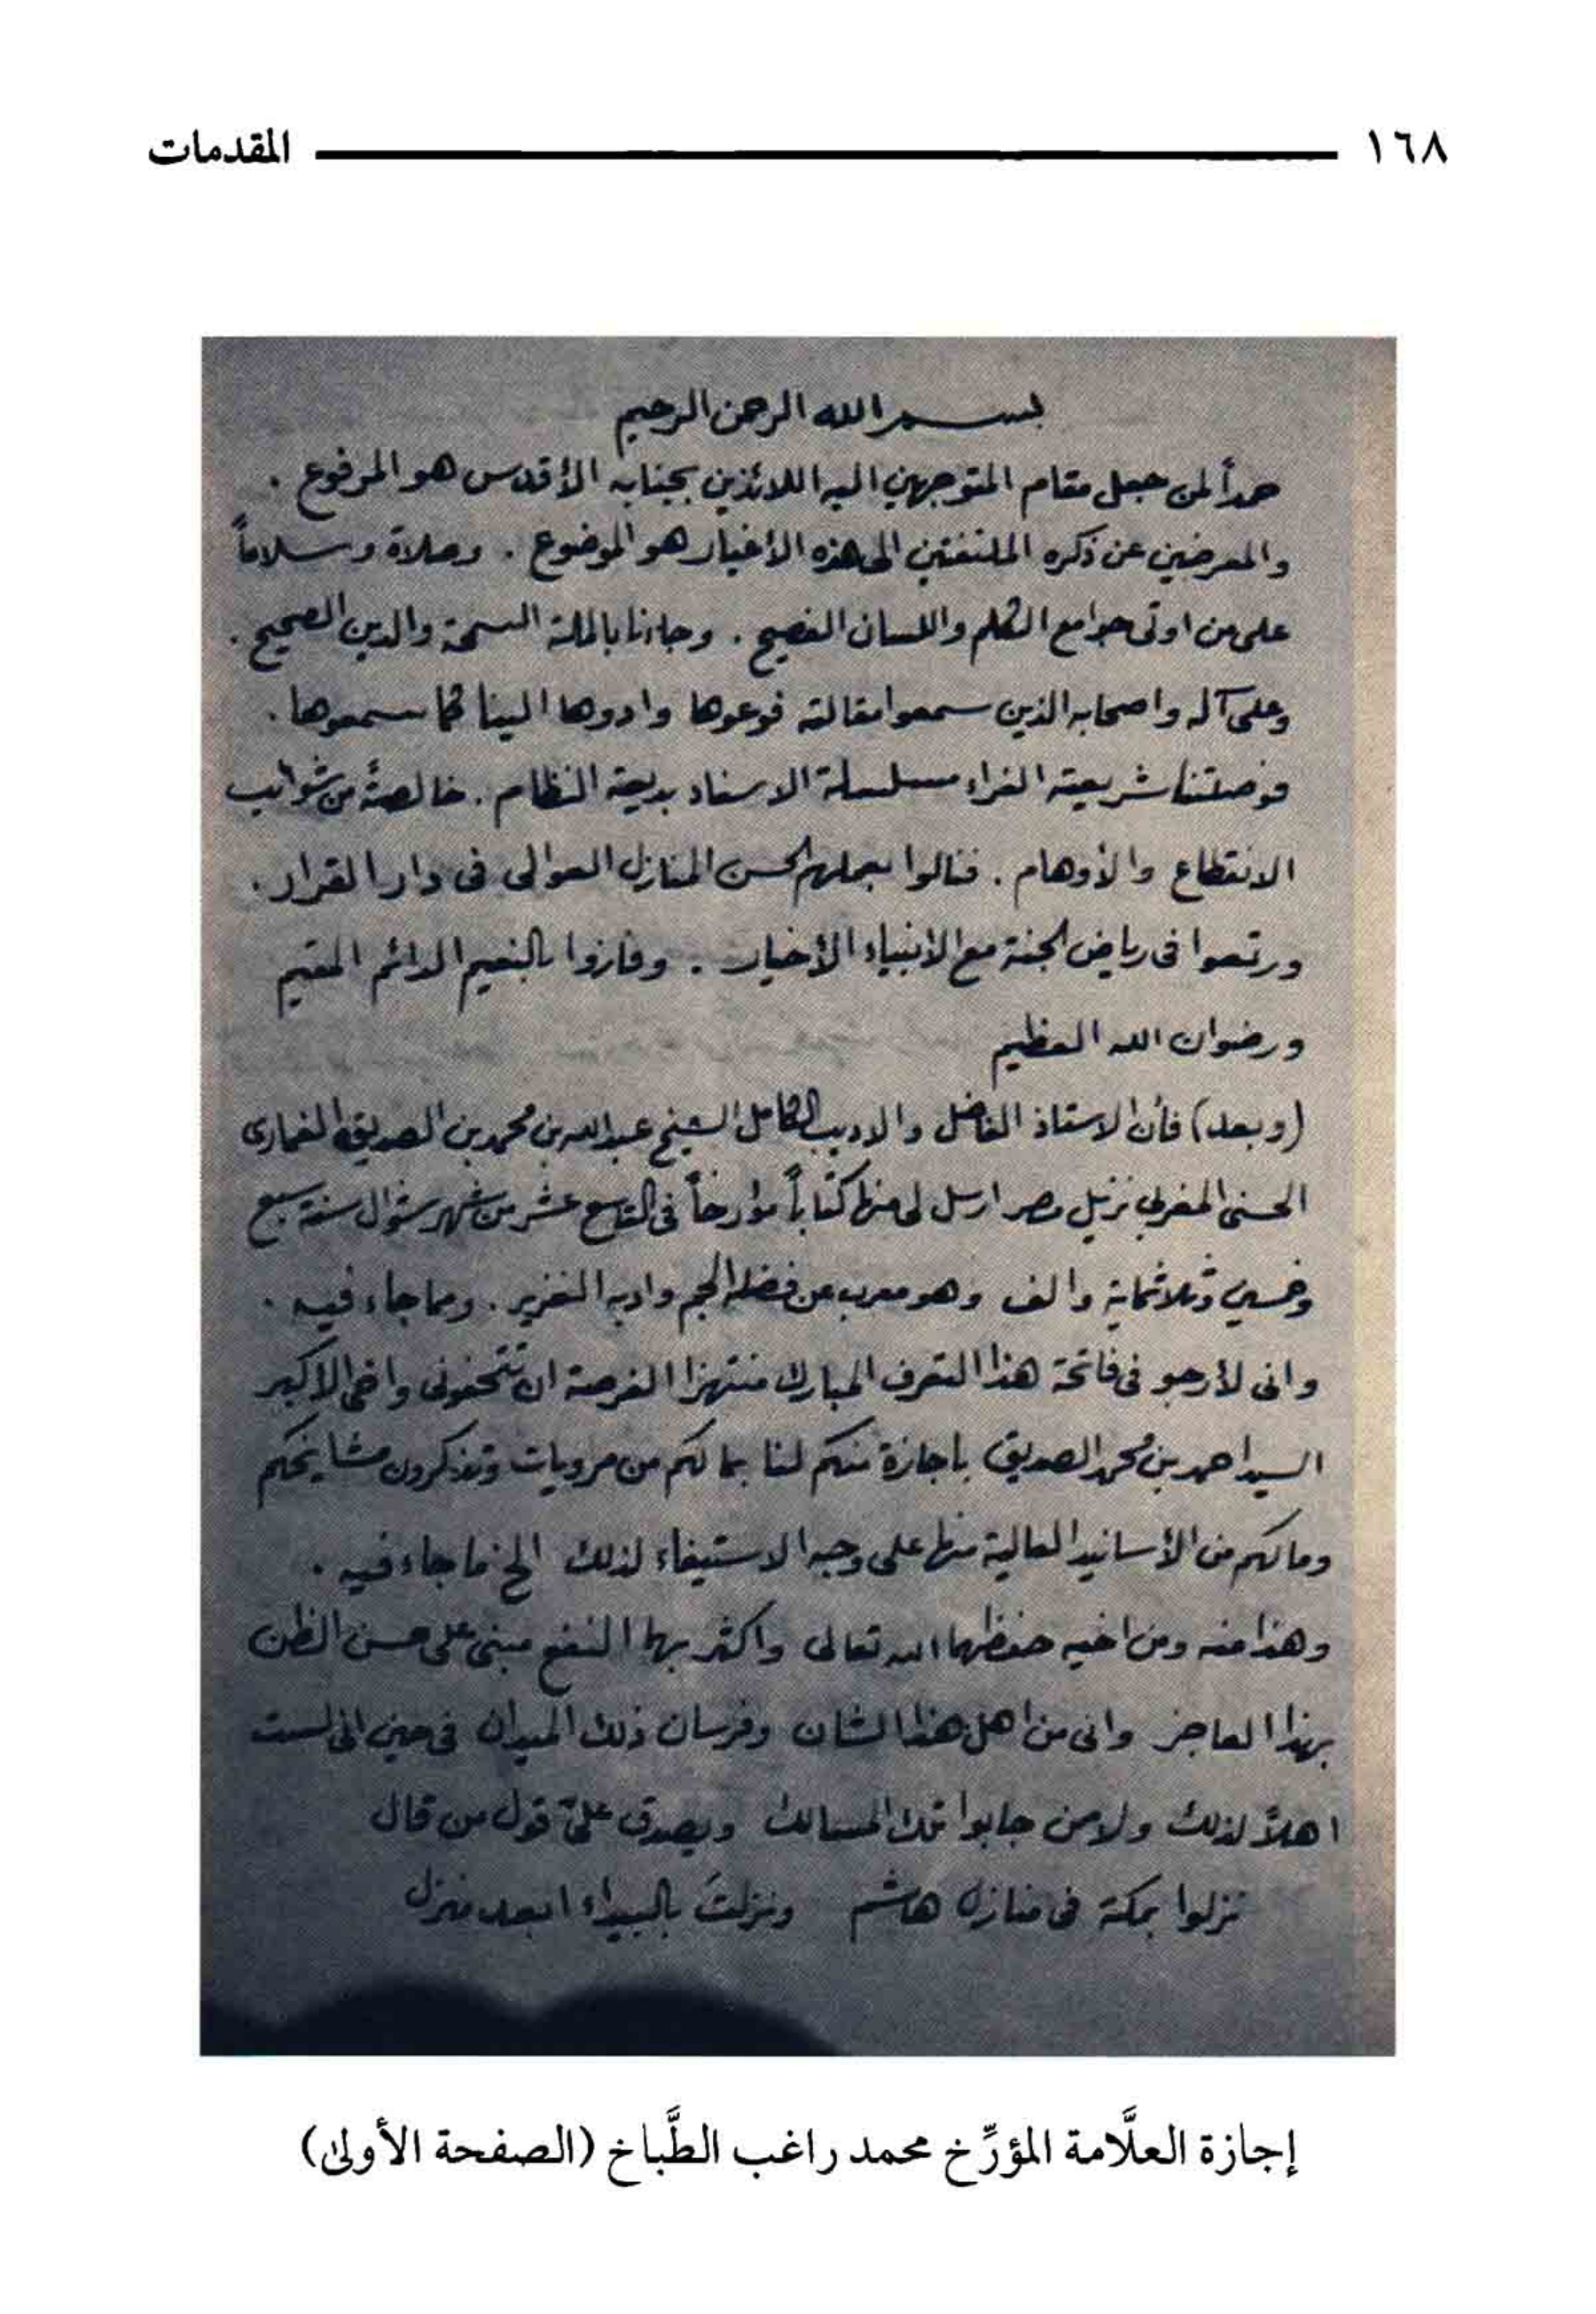 ١٦٨ المقدمات
بسم الله الرحمن الرحيم
حمداً لمن جعل مقام المتوجهين اليه اللائذين بجنابه الأقدس هو المرفوع .
والمعرضين عن ذكره الملتفتين الى هذه الأغيار هو الموضوع . وصلاة وسلاماً
على من اوتى جوامع الكلم واللسان الفصيح . وجاءنا بالملة السمحة والدين الصحيح .
وعلى آله واصحابه الذين سمعوا مقالته فوعوها وادوها الينا كما سمعوها .
فوصلتنا شريعته الغراء مسلسلة الاسناد بديعة النظام . خالصة من شوائب
الانقطاع والأوهام . فنالوا بعملهم الحسن المنازل العوالى فى دار القرار .
ورتعوا فى رياض الجنة مع الأنبياء الأخيار . وفازوا بالنعيم الدائم المقيم
ورضوان الله العظيم
(وبعد) فأن الاستاذ الفاضل والاديب الكامل الشيخ عبد الله بن محمد بن الصديق الغمارى
الحسنى المغربى نزيل مصر ارسل لى منها كتاباً مؤرخاً فى التاسع عشر من شهر شوال سنة سبع
وخمسين وثلاثماية والف وهو معرب عن فضله الجم وادبه الغزير . ومما جاء فيه .
وانى لأرجو فى فاتحة هذا التعرف المبارك منتهزا الفرصة ان تتحفونى واخى الاكبر
السيد احمد بن محمد الصديق بأجازة منكم لنا بما لكم من مرويات وتذكرون مشايخكم
وما لكم من الأسانيد العالية منها على وجه الاستيفاء لذلك الخ ما جاء فيه .
وهذا منه ومن اخيه حفظهما الله تعالى واكثر بهما النفع مبنى على حسن الظن
بهذا العاجز وانى من اهل هذا الشان وفرسان ذلك الميدان فى حين انى لست
اهلاً لذلك ولا من جابوا تلك المسالك ويصدق علىّ قول من قال
نزلوا بمكة فى منازل هاشم ونزلتُ بالبيداء ابعد منزل
إجازة العلَّامة المؤرِّخ محمد راغب الطَّباخ (الصفحة الأولىٰ)